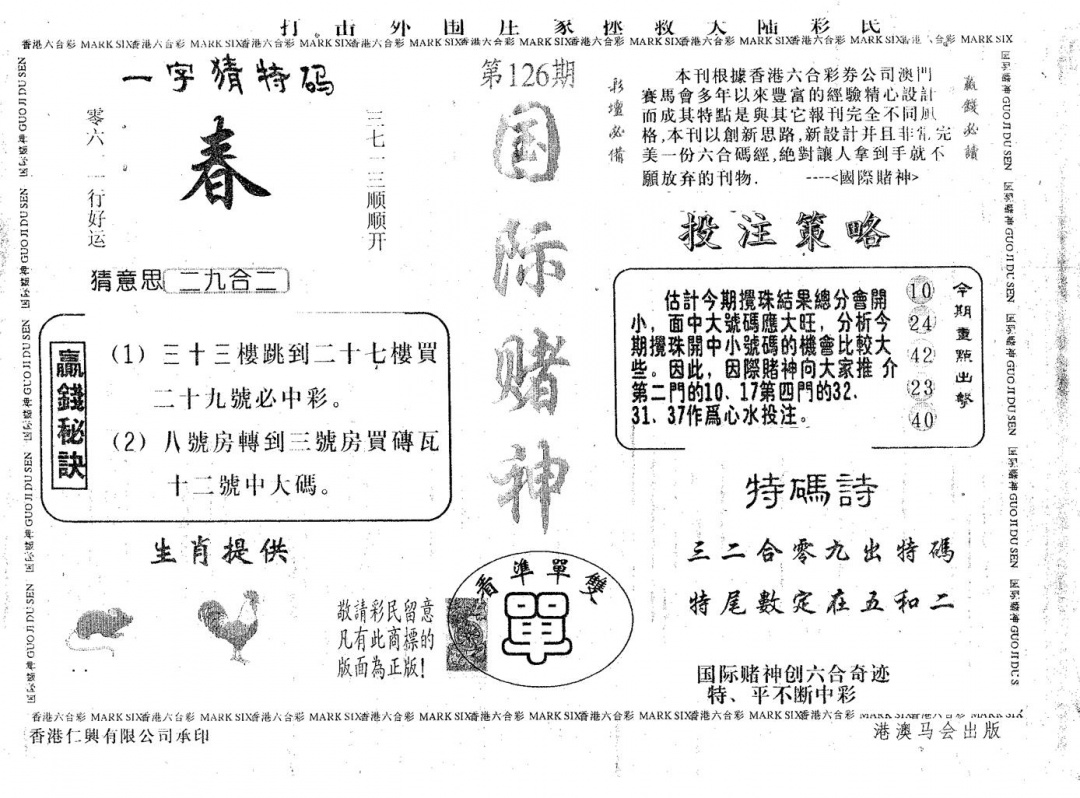 打击外围庄家拯救大陆彩民
香港六合彩 MARK SIX香港六合彩 MARK SIX香港六合彩 MARK SIX香港六合彩 MARK SIX香港六合彩 MARK SIX香港六合彩 MARK SIX香港六合彩 MARK SIX香港六合彩 MARK SIX香港六合彩 MARK SIX
国际赌神 GUO JI DU SEN 国际赌神 GUO JI DU SEN 国际赌神 GUO JI DU SEN 国际赌神 GUO JI DU SEN 国际赌神 GUO JI DU SEN
一字猜特码
零六一一行好运
春
三七一三顺顺开
猜意思 二九合二
贏錢秘訣
(1) 三十三樓跳到二十七樓買
二十九號必中彩。
(2) 八號房轉到三號房買磚瓦
十二號中大碼。
生肖提供
第126期
国际赌神
敬請彩民留意
凡有此商標的
版面為正版!
看準單雙
單
彩壇必備
本刊根據香港六合彩券公司澳門
賽馬會多年以來豐富的經驗精心設計
而成其特點是與其它報刊完全不同風
格,本刊以創新思路,新設計并且非常完
美一份六合碼經,絶對讓人拿到手就不
願放弃的刊物. ----<國際賭神>
贏錢必讀
投注策略
估計今期攪珠結果總分會開
小，面中大號碼應大旺，分析今
期攪珠開中小號碼的機會比較大
些。因此，因際賭神向大家推 介
第二門的10、17第四門的32.
31、37作爲心水投注。
10
24
42
23
40
今期重點出擊
特碼詩
三二合零九出特碼
特尾數定在五和二
国际赌神创六合奇迹
特、平不断中彩
国际赌神 GUO JI DU SEN 国际赌神 GUO JI DU SEN 国际赌神 GUO JI DU SEN 国际赌神 GUO JI DU SEN 国际赌神 GUO JI DU S
香港六合彩 MARK SIX香港六合彩 MARK SIX香港六合彩 MARK SIX香港六合彩 MARK SIX香港六合彩 MARK SIX香港六合彩 MARK SIX香港六合彩 MARK SIX香港六合彩 MARK SIX香港六合彩 MARK SIX
香港仁興有限公司承印
港澳马会出版